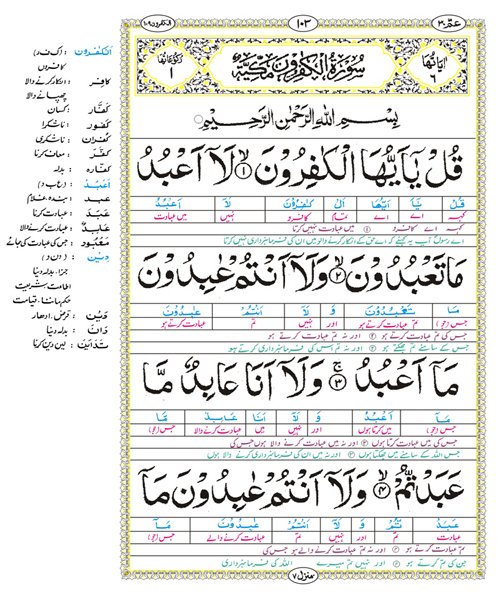 عمّ ۳۰
۱۰۳
الکٰفرون ۱۰۹
اٰیَاتُهَا ۶
سُوْرَةُ الْکٰفِرُوْنَ مَکِّیَّةٌ
رُکُوْعُهَا ۱
بِسْمِ اللّٰهِ الرَّحْمٰنِ الرَّحِیْمِ
قُلْ یٰۤاَیُّهَا الْکٰفِرُوْنَ ۙ﴿۱﴾ لَاۤ اَعْبُدُ
قُلْ یَا اَیُّهَا اَلْ کٰفِرُوْنَ لَا اَعْبُدُ
کہہ اے اے تمام کافرو نہیں میں عبادت
کہہ اے کافرو ۞ میں عبادت نہیں کرتا
مَا تَعْبُدُوْنَ ۙ﴿۲﴾ وَلَاۤ اَنْتُمْ عٰبِدُوْنَ
مَا تَعْبُدُوْنَ وَ لَا اَنْتُمْ عٰبِدُوْنَ
جس (جو) تم عبادت کرتے ہو اور نہیں تم عبادت کرتے ہو
جس کی تم عبادت کرتے ہو ۞ اور نہ تم عبادت کرتے ہو
جس کے سامنے تم جھکتے ہو ۞ اور نہ تم اس کی فرمانبرداری کرتے ہو
مَاۤ اَعْبُدُ ۚ﴿۳﴾ وَلَاۤ اَنَا عَابِدٌ مَّا
مَاۤ اَعْبُدُ وَ لَا اَنَا عَابِدٌ مَّا
جس (جو) میں کرتا ہوں اور نہیں میں عبادت کرنے والا جس (جو)
جس کی میں عبادت کرتا ہوں ۞ اور نہ میں عبادت کرنے والا ہوں جس کی
جس اللہ کے سامنے میں جھکتا ہوں ۞ اور نہ میں ان کی فرمانبرداری کرنے والا ہوں
عَبَدْتُّمْ ۙ﴿۴﴾ وَلَاۤ اَنْتُمْ عٰبِدُوْنَ مَاۤ
عَبَدْ تُّمْ وَ لَا اَنْتُمْ عٰبِدُوْنَ مَاۤ
عبادت تم اور نہیں تم عبادت کرنے والے جس (جو)
تم عبادت کرتے ہو ۞ اور نہ تم عبادت کرنے والے ہو جس کی
جن کی تم کرتے ہو ۞ اور نہیں تم میرے اللہ کی فرمانبرداری
منزل ۷
اَلْکٰفِرُوْنَ : (ک ف ر)
کافروں
کَافِر : انکار کرنے والا
چھپانے والا
کُفَّار : کسان
کَفُوْر : ناشکرا
کُفْرَان : ناشکری
کَفَّرَ : معاف کرنا
کفّارہ : بدلہ
اَعْبُدُ : (ع ب د)
عبد : بندہ، غلام
عَبَدَ : عبادت کرنا
عَابِدٌ : عبادت کرنے والا
مَعْبُوْد : جس کی عبادت کی جائے
دِیْن : (د ی ن)
جزا، بدلہ دینا
اطاعت، شریعت
حکم ماننا، قیامت
دَیْن : قرض، ادھار
دَانَ : بدلہ دینا
تَدَایَنَ : لین دین کرنا